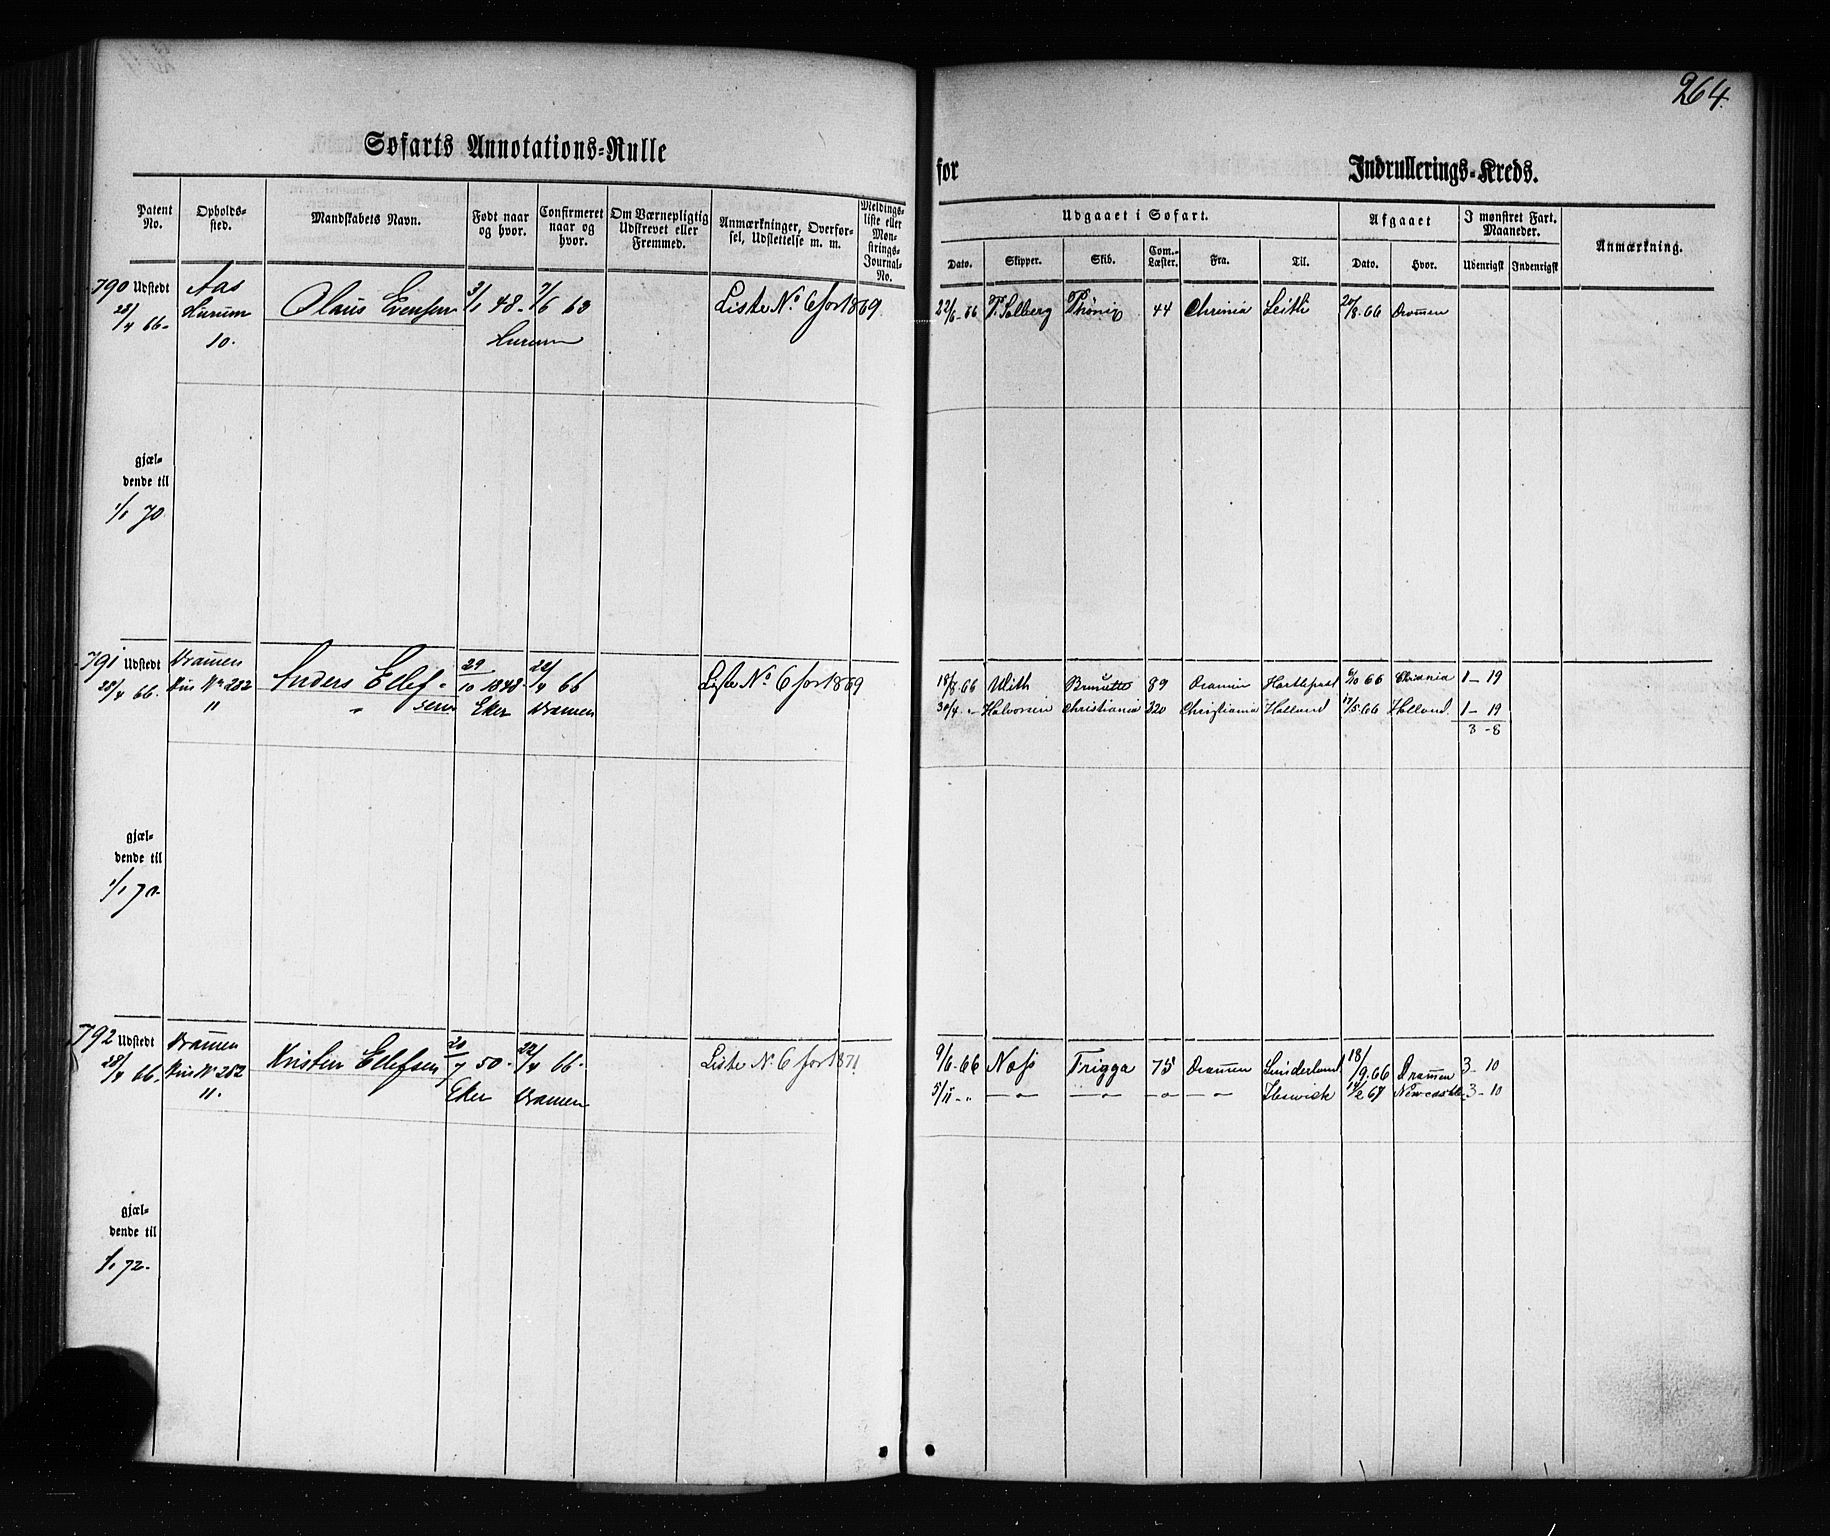 264.
Søfarts Annotations=Rulle
for
Indrullerings=Kreds.
Patent No.
Opholds=sted.
Mandskabets Navn.
Født naar og hvor.
Confirmeret naar og hvor.
Om Værnepligtig Udskrevet eller Fremmed.
Anmærkninger, Overfør=sel, Udslettelse m. m.
Meldings=liste eller Møn=strings=Journal=No.
Udgaaet i Søfart.
Afgaaet
I mønstret Fart. Maaneder.
Anmærkning.
Dato. Skipper. Skib. Com.=Læster. Fra. Til. Dato. Hvor. Udenrigst Indenrigst
790 Udstedt Aas Olaus Evensen 3/1 48. 7/6 63 Liste No. 6 for 1869 22/6 - 66 P. Solberg Phønix 44 Chrinia Leith 20/8. 66 Dramen
28/4 66. Hurum
10. Hurum
gjæl=
dende til
1/1 70.
791 Udstedt Dramen Anders Ellef= 29/10 1848. 22/4 66 Liste No. 6 for 1869 18/8 66 With Brunette 89 Dramen Hartlepool 6/10 66 Chrania 1 - 19
28/4 66. Hus No 282 sen Eker Dramen 30/4 - " Halvorsen Christiania 320 Christiania Holland 17/5. 66 Holland 1 - 19
" 3 - 8
gjæl=
dende til
1/1 70.
792 Udstedt Dramen Kristen Ellefsen 20/7 50. 22/4 66. Liste No. 6 for 1871 9/6. 66 Næss Frigga 75 Dramen Sunderland 18/9. 66 Dramen 3 - 10
28/4 66. Hus No 282 Eker Dramen 5/11 - " — " — — " — - " - — " — 14/2 67 3 - 10
11.
gjæl=
dende til
1/1 72.